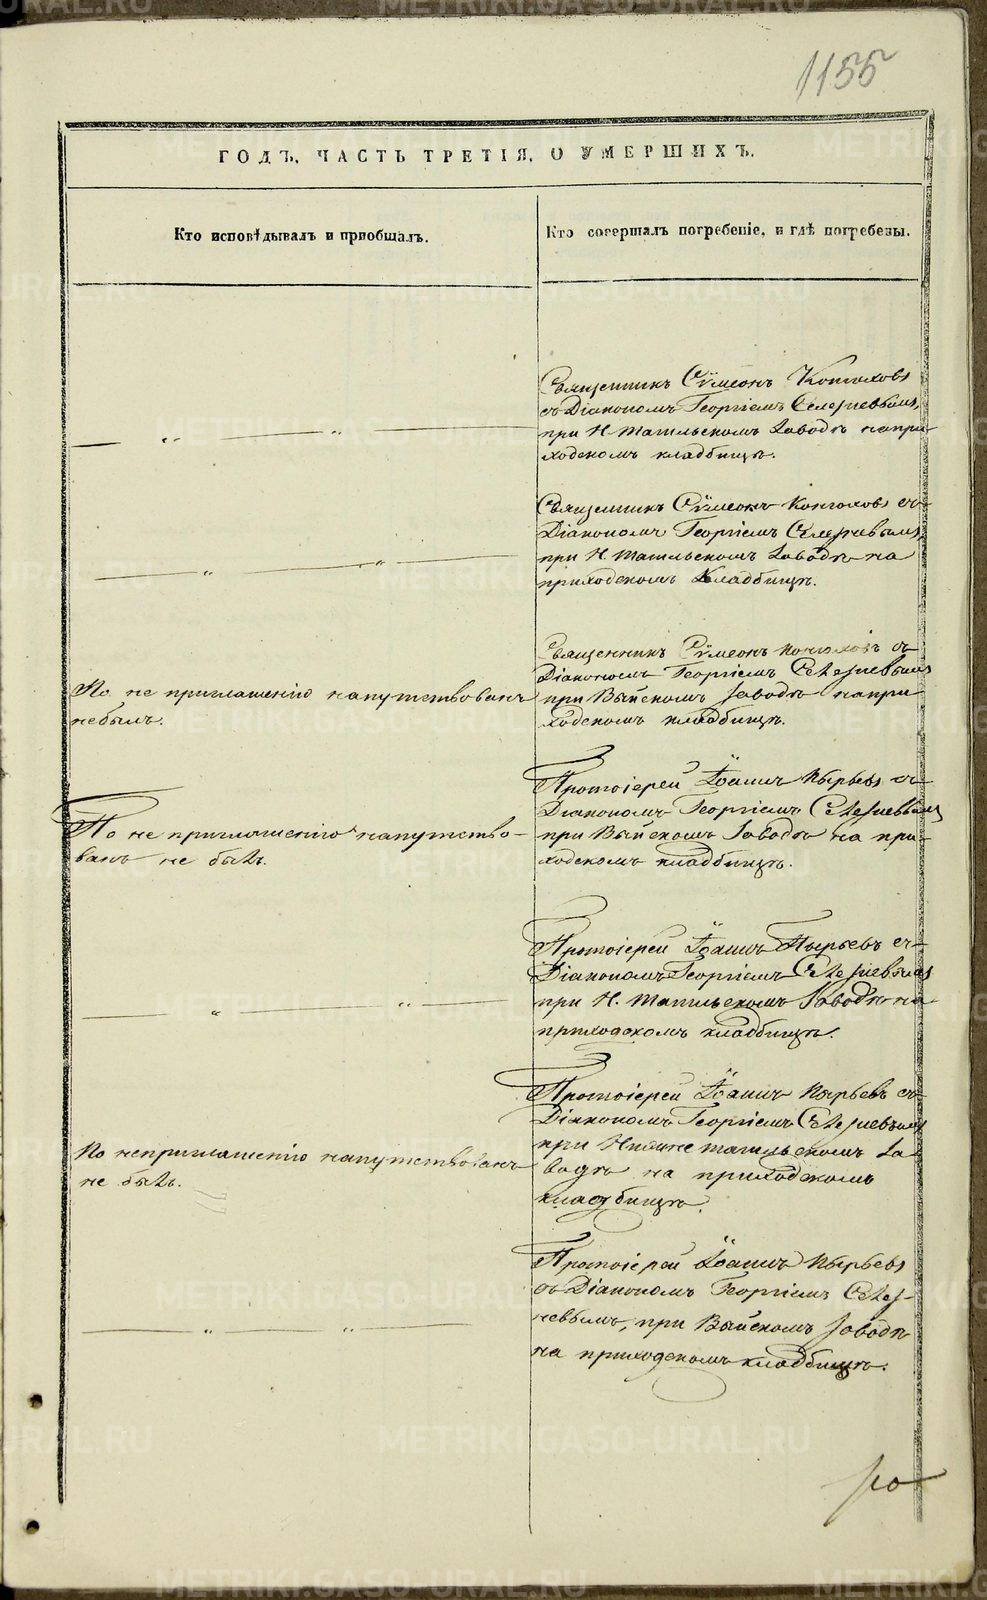 1155
ГОДЪ, ЧАСТЬ ТРЕТІЯ, О УМЕРШИХЪ.
Кто исповѣдывалъ и пріобщалъ.
Кто совершалъ погребеніе, и гдѣ погребены.
Священникъ Сѵмеонъ
съ Діакономъ Георгіемъ Селезневымъ,
при Н. Тагильскомъ Заводѣ на при-
ходскомъ кладбищѣ.
— „ — „ —
Священникъ Сѵмеонъ съ
Діакономъ Георгіемъ Селезневымъ,
при Н. Тагильскомъ Заводѣ на
приходскомъ кладбищѣ.
— „ — „ —
Священникъ Сѵмеонъ съ
Діакономъ Георгіемъ Селезневымъ
при Выйскомъ Заводѣ на при
ходскомъ кладбищѣ.
По не приглашенію напутствованъ
небылъ.
Протоіерей Іоаннъ Пырьевъ съ
Діакономъ Георгіемъ Селезневымъ
при Выйскомъ Заводѣ на при-
ходскомъ кладбищѣ.
По не приглашенію напутство-
ванъ не былъ.
Протоіерей Іоаннъ Пырьевъ съ
Діакономъ Георгіемъ Селезневымъ
при Н. Тагильскомъ Заводѣ на
приходскомъ кладбищѣ.
— „ — „ —
Протоіерей Іоаннъ Пырьевъ съ
Діакономъ Георгіемъ Селезневымъ
при Нижнетагильскомъ За
водѣ на приходскомъ
кладбищѣ.
По неприглашенію напутствованъ
не былъ.
Протоіерей Іоаннъ Пырьевъ
съ Діакономъ Георгіемъ Селез-
невымъ, при Выйскомъ Заводѣ
на приходскомъ кладбищѣ.
— „ — „ —
METRIKI.GASO-URAL.RU